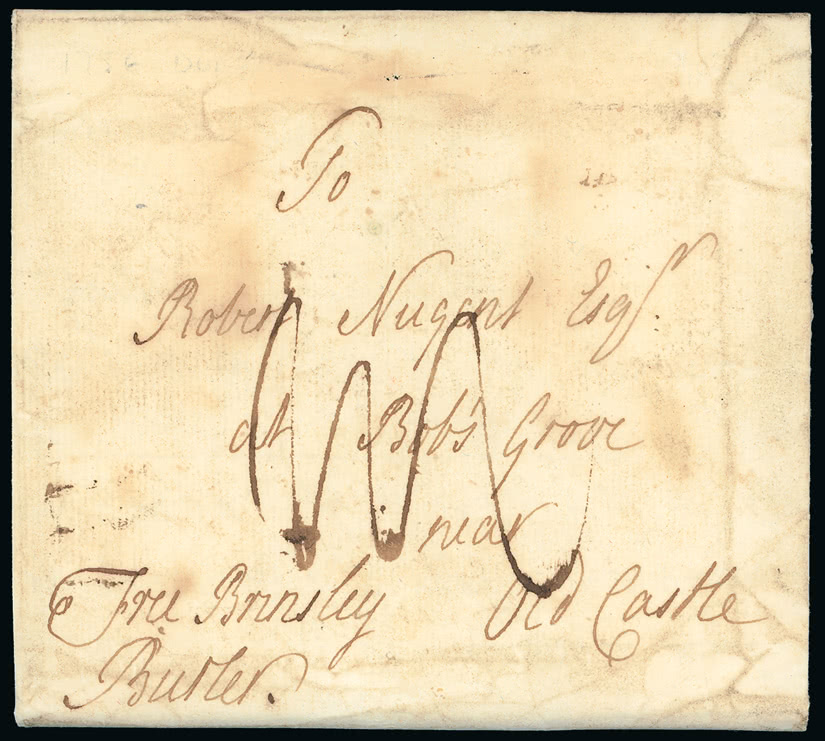 To
Robert Nugent Esqr.
at Bob's Grove
near
Old Castle
Free Brinsley
Butler.